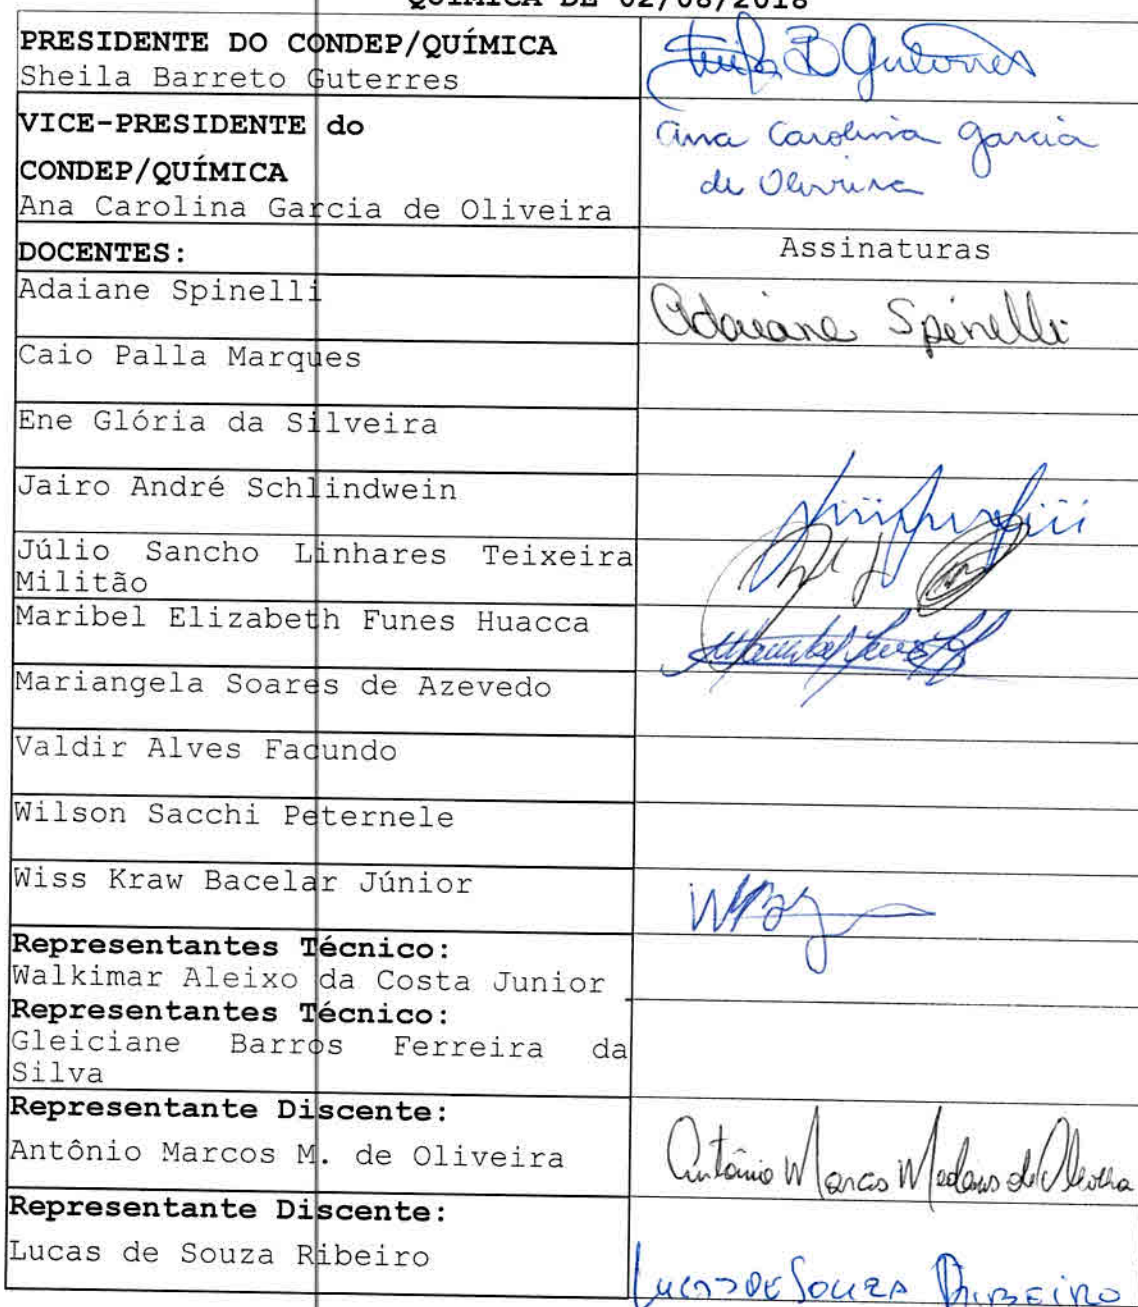 QUÍMICA DE 02/08/2018
PRESIDENTE DO CONDEP/QUÍMICA
Sheila Barreto Guterres
VICE-PRESIDENTE do
CONDEP/QUÍMICA
Ana Carolina Garcia de Oliveira
Ana Carolina Garcia
de Oliveira
DOCENTES:
Assinaturas
Adaiane Spinelli
Adaiane Spinelli
Caio Palla Marques
Ene Glória da Silveira
Jairo André Schlindwein
Júlio Sancho Linhares Teixeira
Militão
Maribel Elizabeth Funes Huacca
Mariangela Soares de Azevedo
Valdir Alves Facundo
Wilson Sacchi Peternele
Wiss Kraw Bacelar Júnior
Representantes Técnico:
Walkimar Aleixo da Costa Junior
Representantes Técnico:
Gleiciane Barros Ferreira da
Silva
Representante Discente:
Antônio Marcos M. de Oliveira
Antônio Marcos Medeiros de Oliveira
Representante Discente:
Lucas de Souza Ribeiro
Lucas DE Souza RIBEIRO